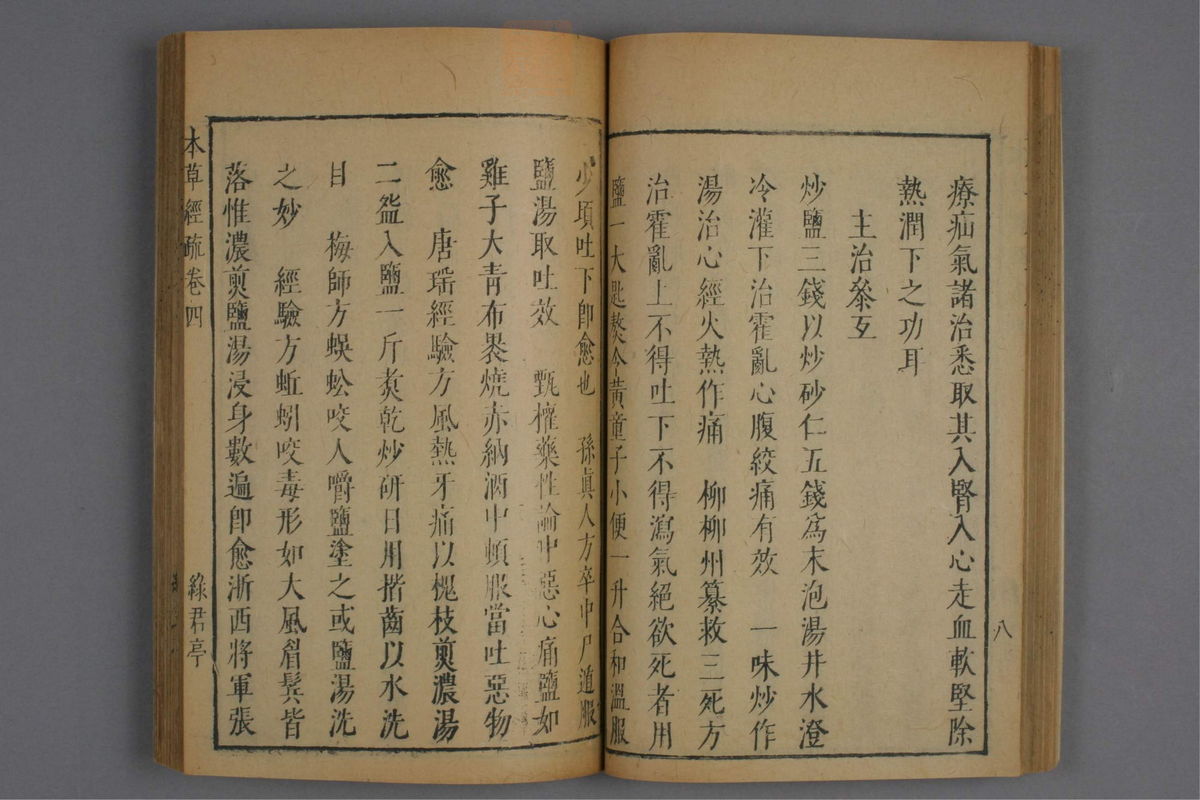 療疝氣諸治悉取其入腎入心走血軟堅除
熱潤下之功耳
主治參互
炒鹽三錢以炒砂仁五錢為末泡湯井水澄
冷灌下治霍亂心腹絞痛有效　一味炒作
湯治心經火熱作痛　柳柳州纂救三死方
治霍亂上不得吐下不得瀉氣絕欲死者用
鹽一大匙熬令黃童子小便一升合和溫服
少頃吐下卽愈也　孫眞人方卒中尸遁服
鹽湯取吐效　甄權藥性論中惡心痛鹽如
雞子大靑布裹燒赤納酒中頓服當吐惡物
愈　唐瑶經驗方風熱牙痛以槐枝煎濃湯
二盌入鹽一斤煑乾炒研日用揩齒以水洗
目　梅師方蜈蚣咬人嚼鹽塗之或鹽湯洗
之妙　經驗方蚯蚓咬毒形如大風眉鬂皆
落惟濃煎鹽湯浸身數遍卽愈浙西將軍張
八
本草經疏卷四
綠君亭